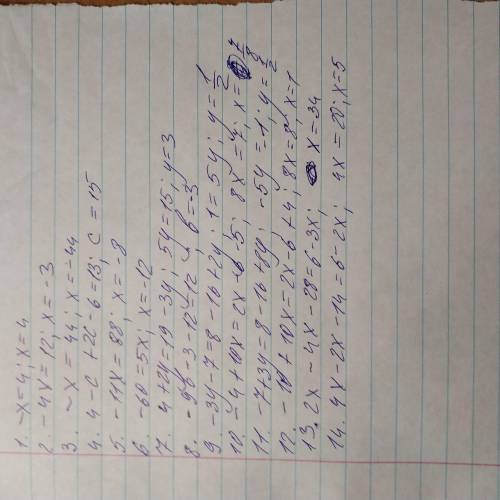 1. -x=4; x=4
2. -4x=12; x=-3
3. -x=44; x=-44
4. 4-c+2c-6=13; c=15
5. -11x=88; x=-8
6. -60=5x; x=-12
7. 4+2y=19-3y; 5y=15; y=3
8. -9b-3-12=12; b=-3
9. -3y-7=8-16+2y; 1=5y; y=1/2
10. -4+10x=2x-5; 8x=7; x=7/8
11. -7+3y=8-16+8y; -5y=-1; y=1/2
12. -10+10x=2x-6+4; 8x=8; x=1
13. 2x-4x-28=6-3x; x=34
14. 4x-2x-14=6-2x; 4x=20; x=5